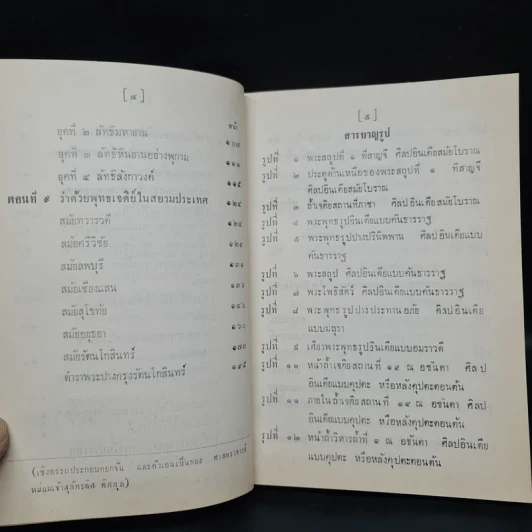 [ ๔ ]
หน้า
ยุคที่ ๒ ลัทธิมหายาน ๑๐๘
ยุคที่ ๓ ลัทธิหินยานอย่างพุกาม ๑๑๑
ยุคที่ ๔ ลัทธิลังกาวงศ์ ๑๑๕
ตอนที่ ๙ ว่าด้วยพุทธเจดีย์ในสยามประเทศ ๑๒๔
สมัยทวารวดี ๑๒๔
สมัยศรีวิชัย ๑๒๙
สมัยลพบุรี ๑๓๑
สมัยเชียงแสน ๑๓๘
สมัยสุโขทัย ๑๔๖
สมัยอยุธยา ๑๖๐
สมัยรัตนโกสินทร์ ๑๗๘
ตำราพระปางกรุงรัตนโกสินทร์ ๑๙๕
(เชิงอรรถประกอบดอกจัน และตัวเอนเป็นของ ศาสตราจารย์
หม่อมเจ้าสุภัทรดิศ ดิศกุล)
[ ๕ ]
สารบาญรูป
รูปที่ ๑ พระสถูปที่ ๑ ที่สาญจี ศิลปอินเดียสมัยโบราณ
รูปที่ ๒ ประตูด้านเหนือของพระสถูปที่ ๑ ที่สาญจี
ศิลปอินเดียสมัยโบราณ
รูปที่ ๓ ถ้ำเจดียสถานที่ภาชา ศิลปอินเดียสมัยโบราณ
รูปที่ ๔ พระพุทธรูปอินเดียแบบคันธารราฐ
รูปที่ ๕ พระพุทธรูปปางปรินิพพาน ศิลปอินเดียแบบ
คันธารราฐ
รูปที่ ๖ พระสถูป ศิลปอินเดียแบบคันธารราฐ
รูปที่ ๗ พระโพธิสัตว์ ศิลปอินเดียแบบคันธารราฐ
รูปที่ ๘ พระพุทธรูปปางประทานอภัย ศิลปอินเดีย
แบบมถุรา
รูปที่ ๙ เศียรพระพุทธรูปอินเดียแบบอมราวดี
รูปที่ ๑๐ หน้าถ้ำเจดียสถานที่ ๑๙ ณ อชันตา ศิลป
อินเดียแบบคุปตะ หรือหลังคุปตะตอนต้น
รูปที่ ๑๑ ภายในถ้ำเจดียสถานที่ ๑๙ ณ อชันตา ศิลป
อินเดียแบบคุปตะ หรือหลังคุปตะตอนต้น
รูปที่ ๑๒ หน้าถ้ำวิหารถ้ำที่ ๑ ณ อชันตา ศิลปอินเดีย
แบบคุปตะ หรือหลังคุปตะตอนต้น